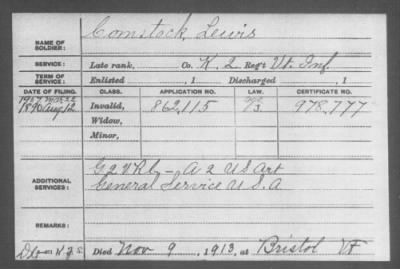 NAME OF SOLDIER: Comstock, Lewis
SERVICE: Late rank, Co. K, 2 Reg't Vt. Inf.
TERM OF SERVICE: Enlisted , 1 Discharged , 1
DATE OF FILING. CLASS. APPLICATION NO. LAW. CERTIFICATE NO.
1907 Mar 22
1890 Aug 12 Invalid, 862,115 978,777
Widow,
Minor,
ADDITIONAL SERVICES: G 2 V R C, - A 2 US Art
General Service U.S.A
REMARKS:
Died Nov 9, 1913, at Bristol Vt